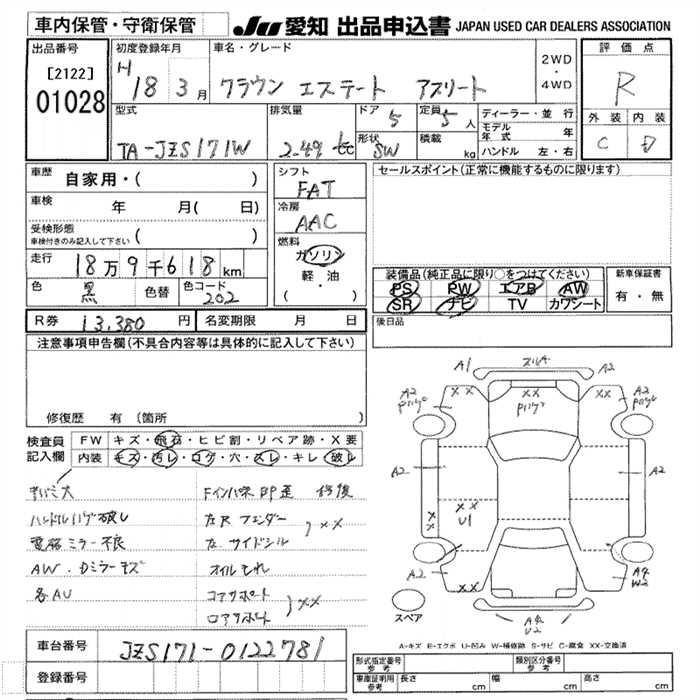 車内保管・守衛保管
JU 愛知 出品申込書 JAPAN USED CAR DEALERS ASSOCIATION
出品番号 [2122] 01028
初度登録年月 H 18 3月
車名・グレード クラウン エステート アスリート
2WD・4WD
評価点 R
型式 TA-JZS171W
排気量 2.49 ℓ cc
ドア 5
形状 SW
定員 5人
積載 kg
ディーラー・並行
モデル年式 年
ハンドル 左・右
外装 内装
C D
車歴 自家用・( )
車検 年 月( 日)
受検形態 車検付きのみ記入して下さい ( )
走行 18万9千618km
色 黒 色替 色コード 202
シフト FAT
冷房 AAC
燃料 ガソリン
軽・油
( )
セールスポイント(正常に機能するものに限ります)
装備品(純正品に限り○をつけてください)
PS PW エアB AW
SR ナビ TV カワシート
新車保証書
有・無
R券 13,380円 名変期限 月 日
後日品
注意事項申告欄(不具合内容等は具体的に記入して下さい)
修復歴 有(箇所
検査員記入欄
FW キズ・飛石・ヒビ割・リペア跡・X要
内装 キズ・汚レ・コゲ・穴・スレ・キレ・破レ
キバミ大
ハンドル 破レ
電格ミラー不良
AW.Dミラーキズ
各AU
Fインパネ 歪 修復
左Rフェンダー
左サイドシル
××
オイルモレ
コアサポート
ロアサポート
××
A1
A2
××
××
A2
A2
A2
A2
××
××
U1
××
A2
A4
W2
A4
U2
スペア
A-キズ E-エクボ U-凹み W-補修跡 S-サビ C-腐食 XX-交換済
車台番号 JZS171-0122781
登録番号
形式指定番号 参考
類別区分番号 参考
車庫証明用 参考 長さ cm 幅 cm 高さ cm